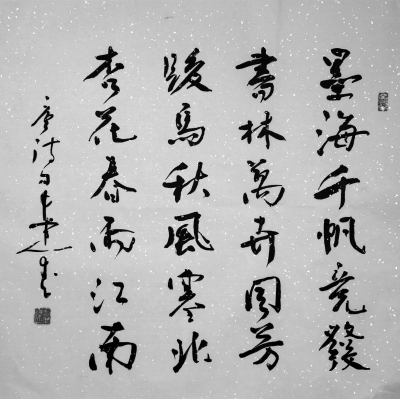 墨海千帆竞發
書林萬卉同芳
駿馬秋風塞北
杏花春雨江南